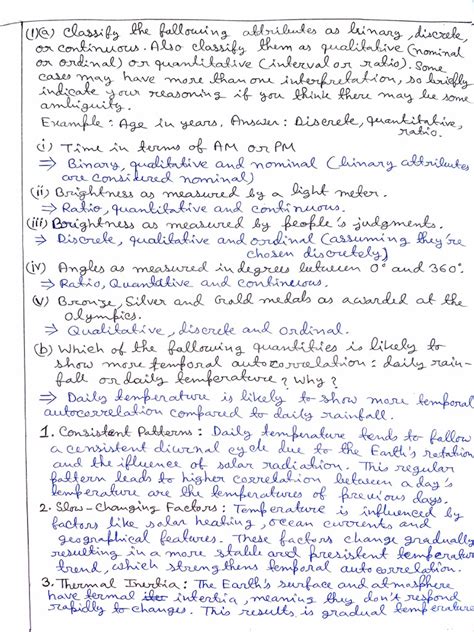 (1)(a) Classify the following attributes as binary, discrete,
or continuous. Also classify them as qualitative (nominal
or ordinal) or quantitative (interval or ratio). Some
cases may have more than one interpretation, so briefly
indicate your reasoning if you think there may be some
ambiguity.
Example : Age in years. Answer : Discrete, quantitative,
ratio.
(i) Time in terms of AM or PM
⇒ Binary, qualitative and nominal (binary attributes
are considered nominal)
(ii) Brightness as measured by a light meter.
⇒ Ratio, quantitative and continuous.
(iii) Brightness as measured by people's judgments.
⇒ Discrete, qualitative and ordinal (assuming they're
chosen discretely)
(iv) Angles as measured in degrees between 0° and 360°.
⇒ Ratio, Quantative and continuous.
(v) Bronze, Silver and Gold medals as awarded at the
olympics.
⇒ Qualitative, discrete and ordinal.
(b) Which of the following quantities is likely to
show more temporal autocorrelation : daily rain-
fall or daily temperature ? Why ?
⇒ Daily temperature is likely to show more temporal
autocorrelation compared to daily rainfall.
1. Consistent Patterns : Daily temperature tends to follow
a consistent diurnal cycle due to the Earth's rotation
and the influence of solar radiation. This regular
pattern leads to higher correlation between a day's
temperature are the temperatures of previous days.
2. Slow-Changing Factors : Temperature is influenced by
factors like solar heating, ocean currents and
geographical features. These factors change gradually
resulting in a more stable and presistent temperature
trend, which strengthens temporal autocorrelation.
3. Thermal Inertia : The Earth's surface and atmosphere
have termal intertia, meaning they don't respond
rapidly to changes. This results is gradual temperature